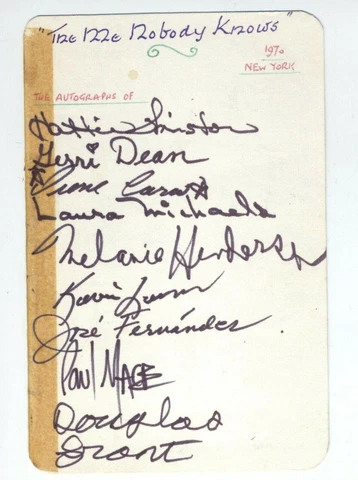 "The Me Nobody Knows"
1970
NEW YORK
THE AUTOGRAPHS OF
Hattie Winston
Gerri Dean
Irene Cara
Laura Michaels
Melanie Henderson
Kevin
José Fernández
Paul MACE
Douglas
Grant